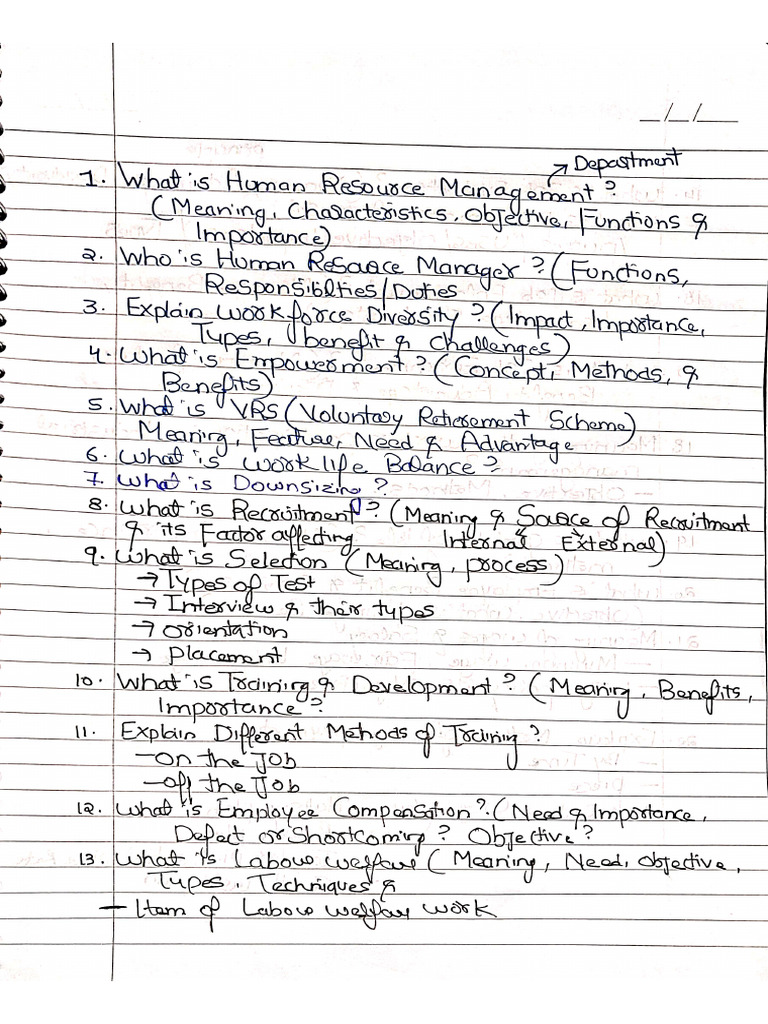 _/_/__
→ Department
1. What is Human Resource Management?
(Meaning, Characteristics, Objective, Functions &
Importance)
2. Who is Human Resource Manager? (Functions,
Responsiblties/Duties
3. Explain Workforce Diversity? (Impact, Importance,
Types, benefit & Challenges)
4. What is Empowerment? (Concept, Methods, &
Benefits)
5. What is VRS (Voluntary Retierement Scheme)
Meaning, Feature, Need & Advantage
6. What is work life Balance?
7. What is Downsizing?
8. What is Recruitment? (Meaning & Source of Recruitment
& its Factor affecting Internal External)
9. What is Selection (Meaning, process)
→ Types of Test
→ Interview & their types
→ Orientation
→ Placement
10. What is Training & Development? (Meaning, Benefits,
Importance?
11. Explain Different Methods of Training?
- On the Job
- Off the Job
12. What is Employee Compensation? (Need & Importance,
Defect or Shortcoming? Objective?
13. What is Labour welfare (Meaning, Need, Objective,
Types, Techniques &
- Item of Labour welfare work